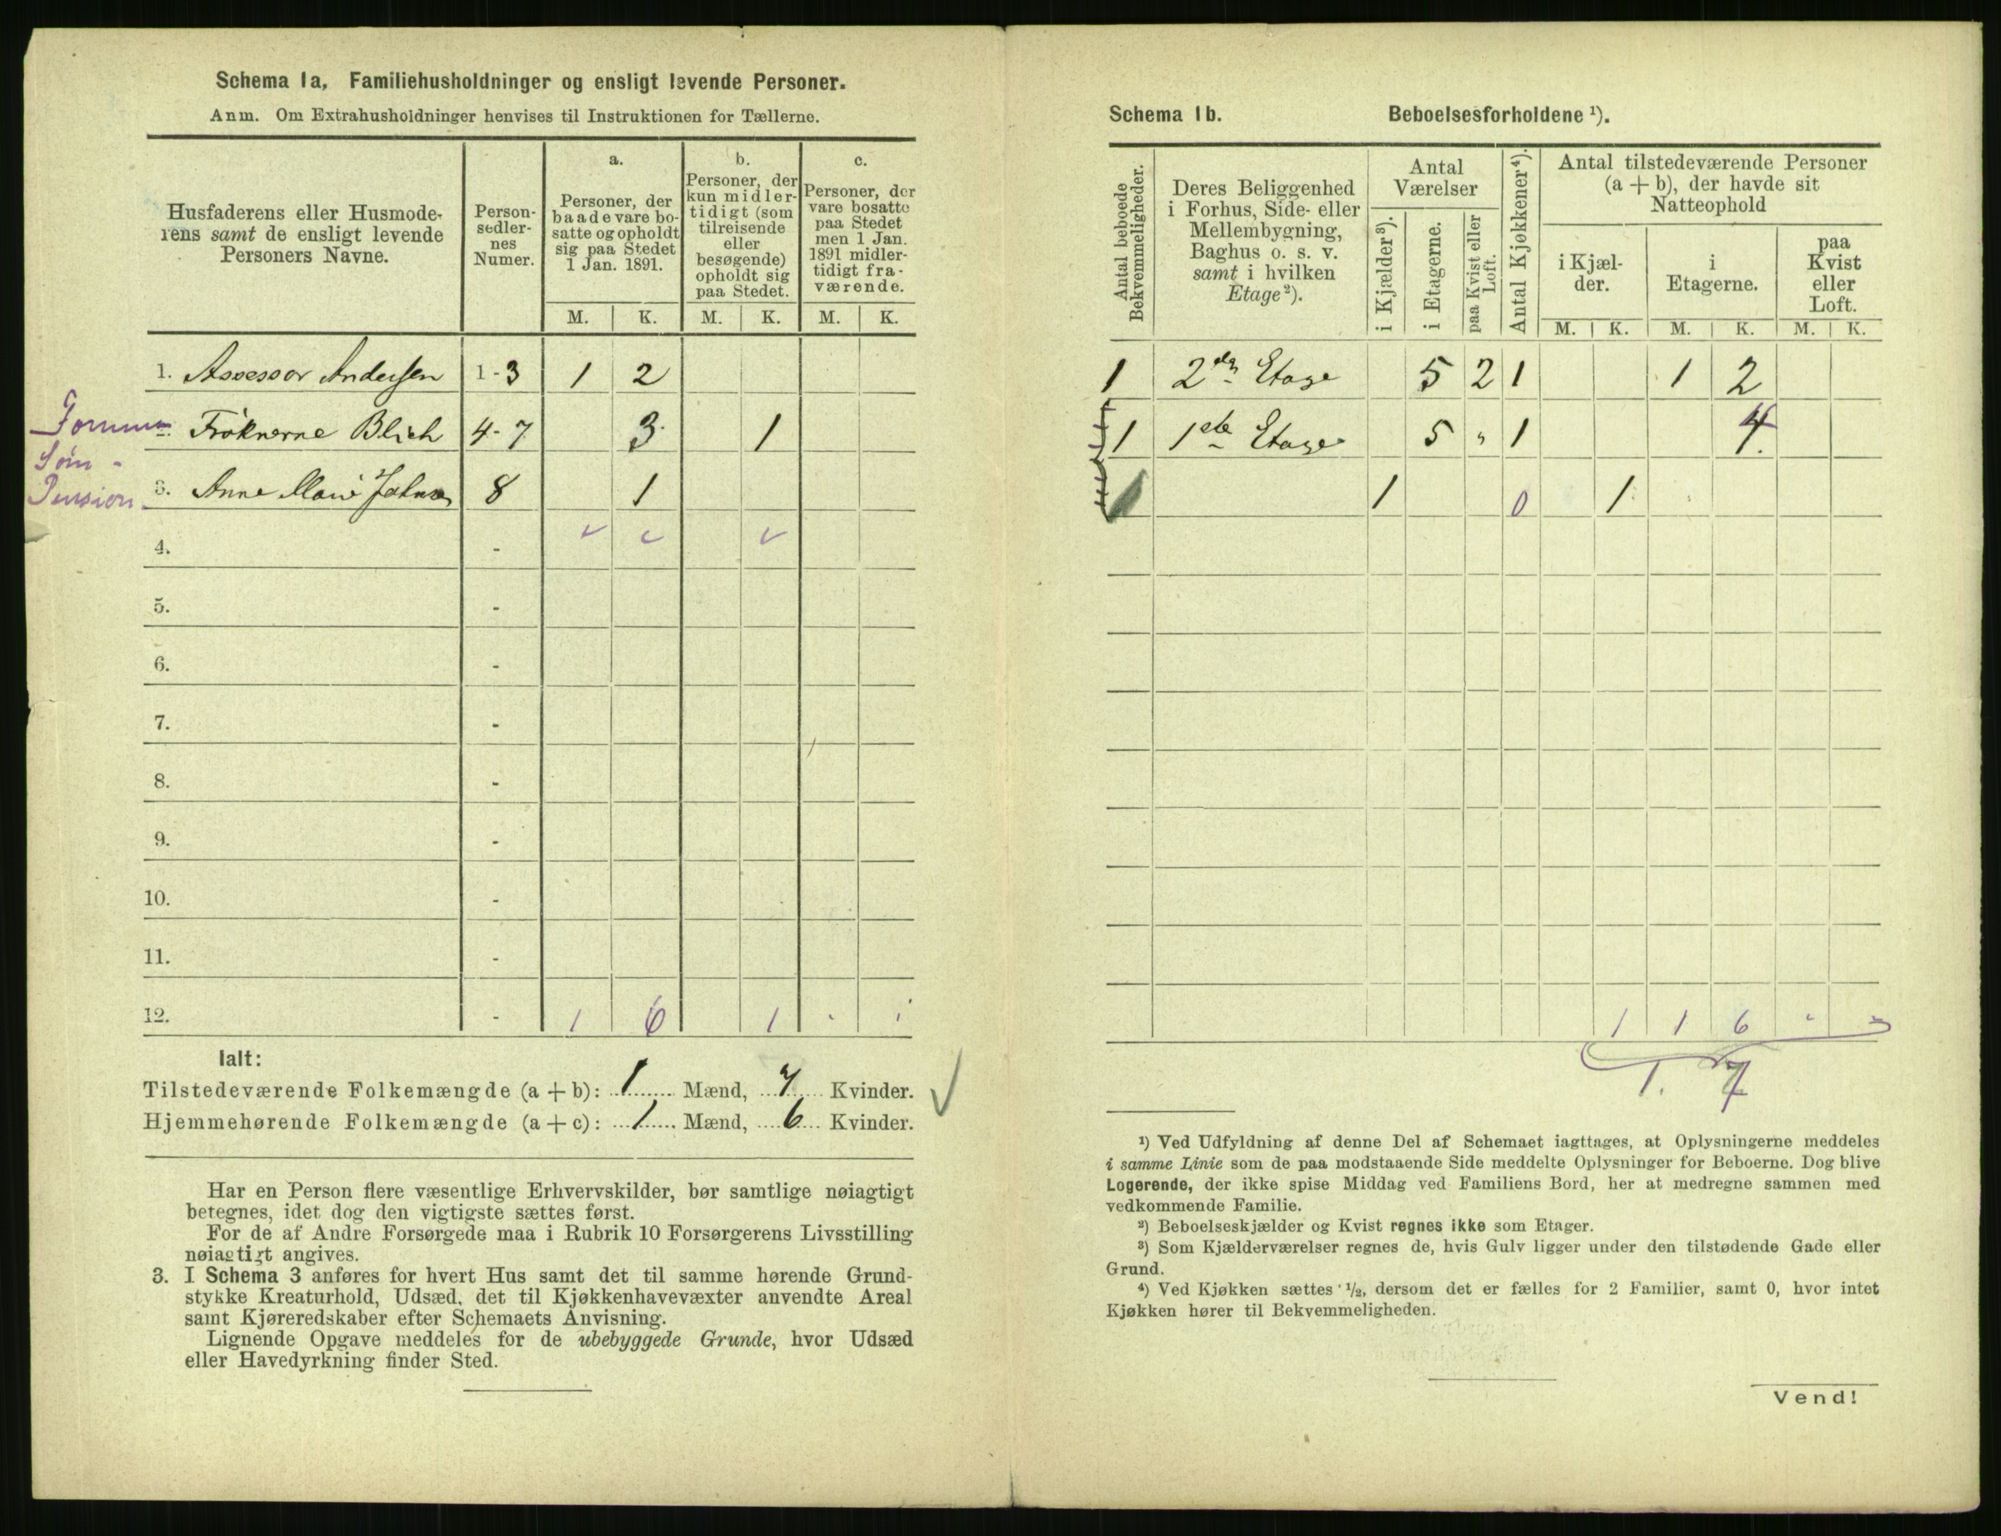 Schema 1a, Familiehusholdninger og ensligt levende Personer.
Anm. Om Extrahusholdninger henvises til Instruktionen for Tællerne.
Husfaderens eller Husmode-
rens samt de ensligt levende
Personers Navne.
Person-
sedler-
nes
Numer.
a.
Personer, der
baade vare bo-
satte og opholdt
sig paa Stedet
1 Jan. 1891.
b.
Personer, der
kun midler-
tidigt (som
tilreisende
eller
besøgende)
opholdt sig
paa Stedet.
c.
Personer, der
vare bosatte
paa Stedet
men 1 Jan.
1891 midler-
tidigt fra-
værende.
M. K. M. K. M. K.
1. Assessor Andersen 1-3 1 2
Frøknerne Blich 4-7 3 1
3. Anne Marie 8 1
Pension
4. -
5. -
6. -
7. -
8. -
9. -
10. -
11. -
12. - 1 6 1
Ialt:
Tilstedeværende Folkemængde (a + b): 1 Mænd, 7 Kvinder.
Hjemmehørende Folkemængde (a + c): 1 Mænd, 6 Kvinder.
Har en Person flere væsentlige Erhvervskilder, bør samtlige nøiagtigt
betegnes, idet dog den vigtigste sættes først.
For de af Andre Forsørgede maa i Rubrik 10 Forsørgerens Livsstilling
nøiagtigt angives.
3. I Schema 3 anføres for hvert Hus samt det til samme hørende Grund-
stykke Kreaturhold, Udsæd, det til Kjøkkenhavevæxter anvendte Areal
samt Kjøreredskaber efter Schemaets Anvisning.
Lignende Opgave meddeles for de ubebyggede Grunde, hvor Udsæd
eller Havedyrkning finder Sted.
Schema 1b. Beboelsesforholdene ¹).
Antal beboede
Bekvemmeligheder.
Deres Beliggenhed
i Forhus, Side- eller
Mellembygning,
Baghus o. s. v.
samt i hvilken
Etage²).
Antal
Værelser
i Kjælder³).
i Etagerne.
paa Kvist eller
Loft.
Antal Kjøkkener⁴).
Antal tilstedeværende Personer
(a + b), der havde sit
Natteophold
i Kjæl-
der.
i
Etagerne.
paa
Kvist
eller
Loft.
M. K. M. K. M. K.
1 2den Etage 5 2 1 1 2
1 1ste Etage 5 " 1 4
1 0 1
1 1 6
1. 7
¹) Ved Udfyldning af denne Del af Schemaet iagttages, at Oplysningerne meddeles
i samme Linie som de paa modstaaende Side meddelte Oplysninger for Beboerne. Dog blive
Logerende, der ikke spise Middag ved Familiens Bord, her at medregne sammen med
vedkommende Familie.
²) Beboelseskjælder og Kvist regnes ikke som Etager.
³) Som Kjælderværelser regnes de, hvis Gulv ligger under den tilstødende Gade eller
Grund.
⁴) Ved Kjøkken sættes ½, dersom det er fælles for 2 Familier, samt 0, hvor intet
Kjøkken hører til Bekvemmeligheden.
Vend!